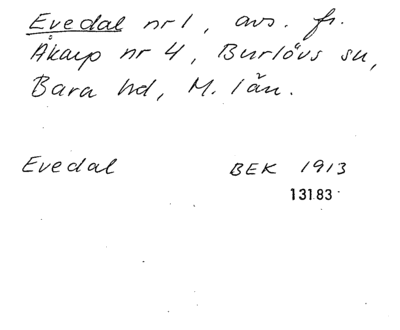 Evedal nr 1, avs. fr.
Åkarp nr 4, Burlövs sn,
Bara hd, M. län.
Evedal BEK 1913
13183